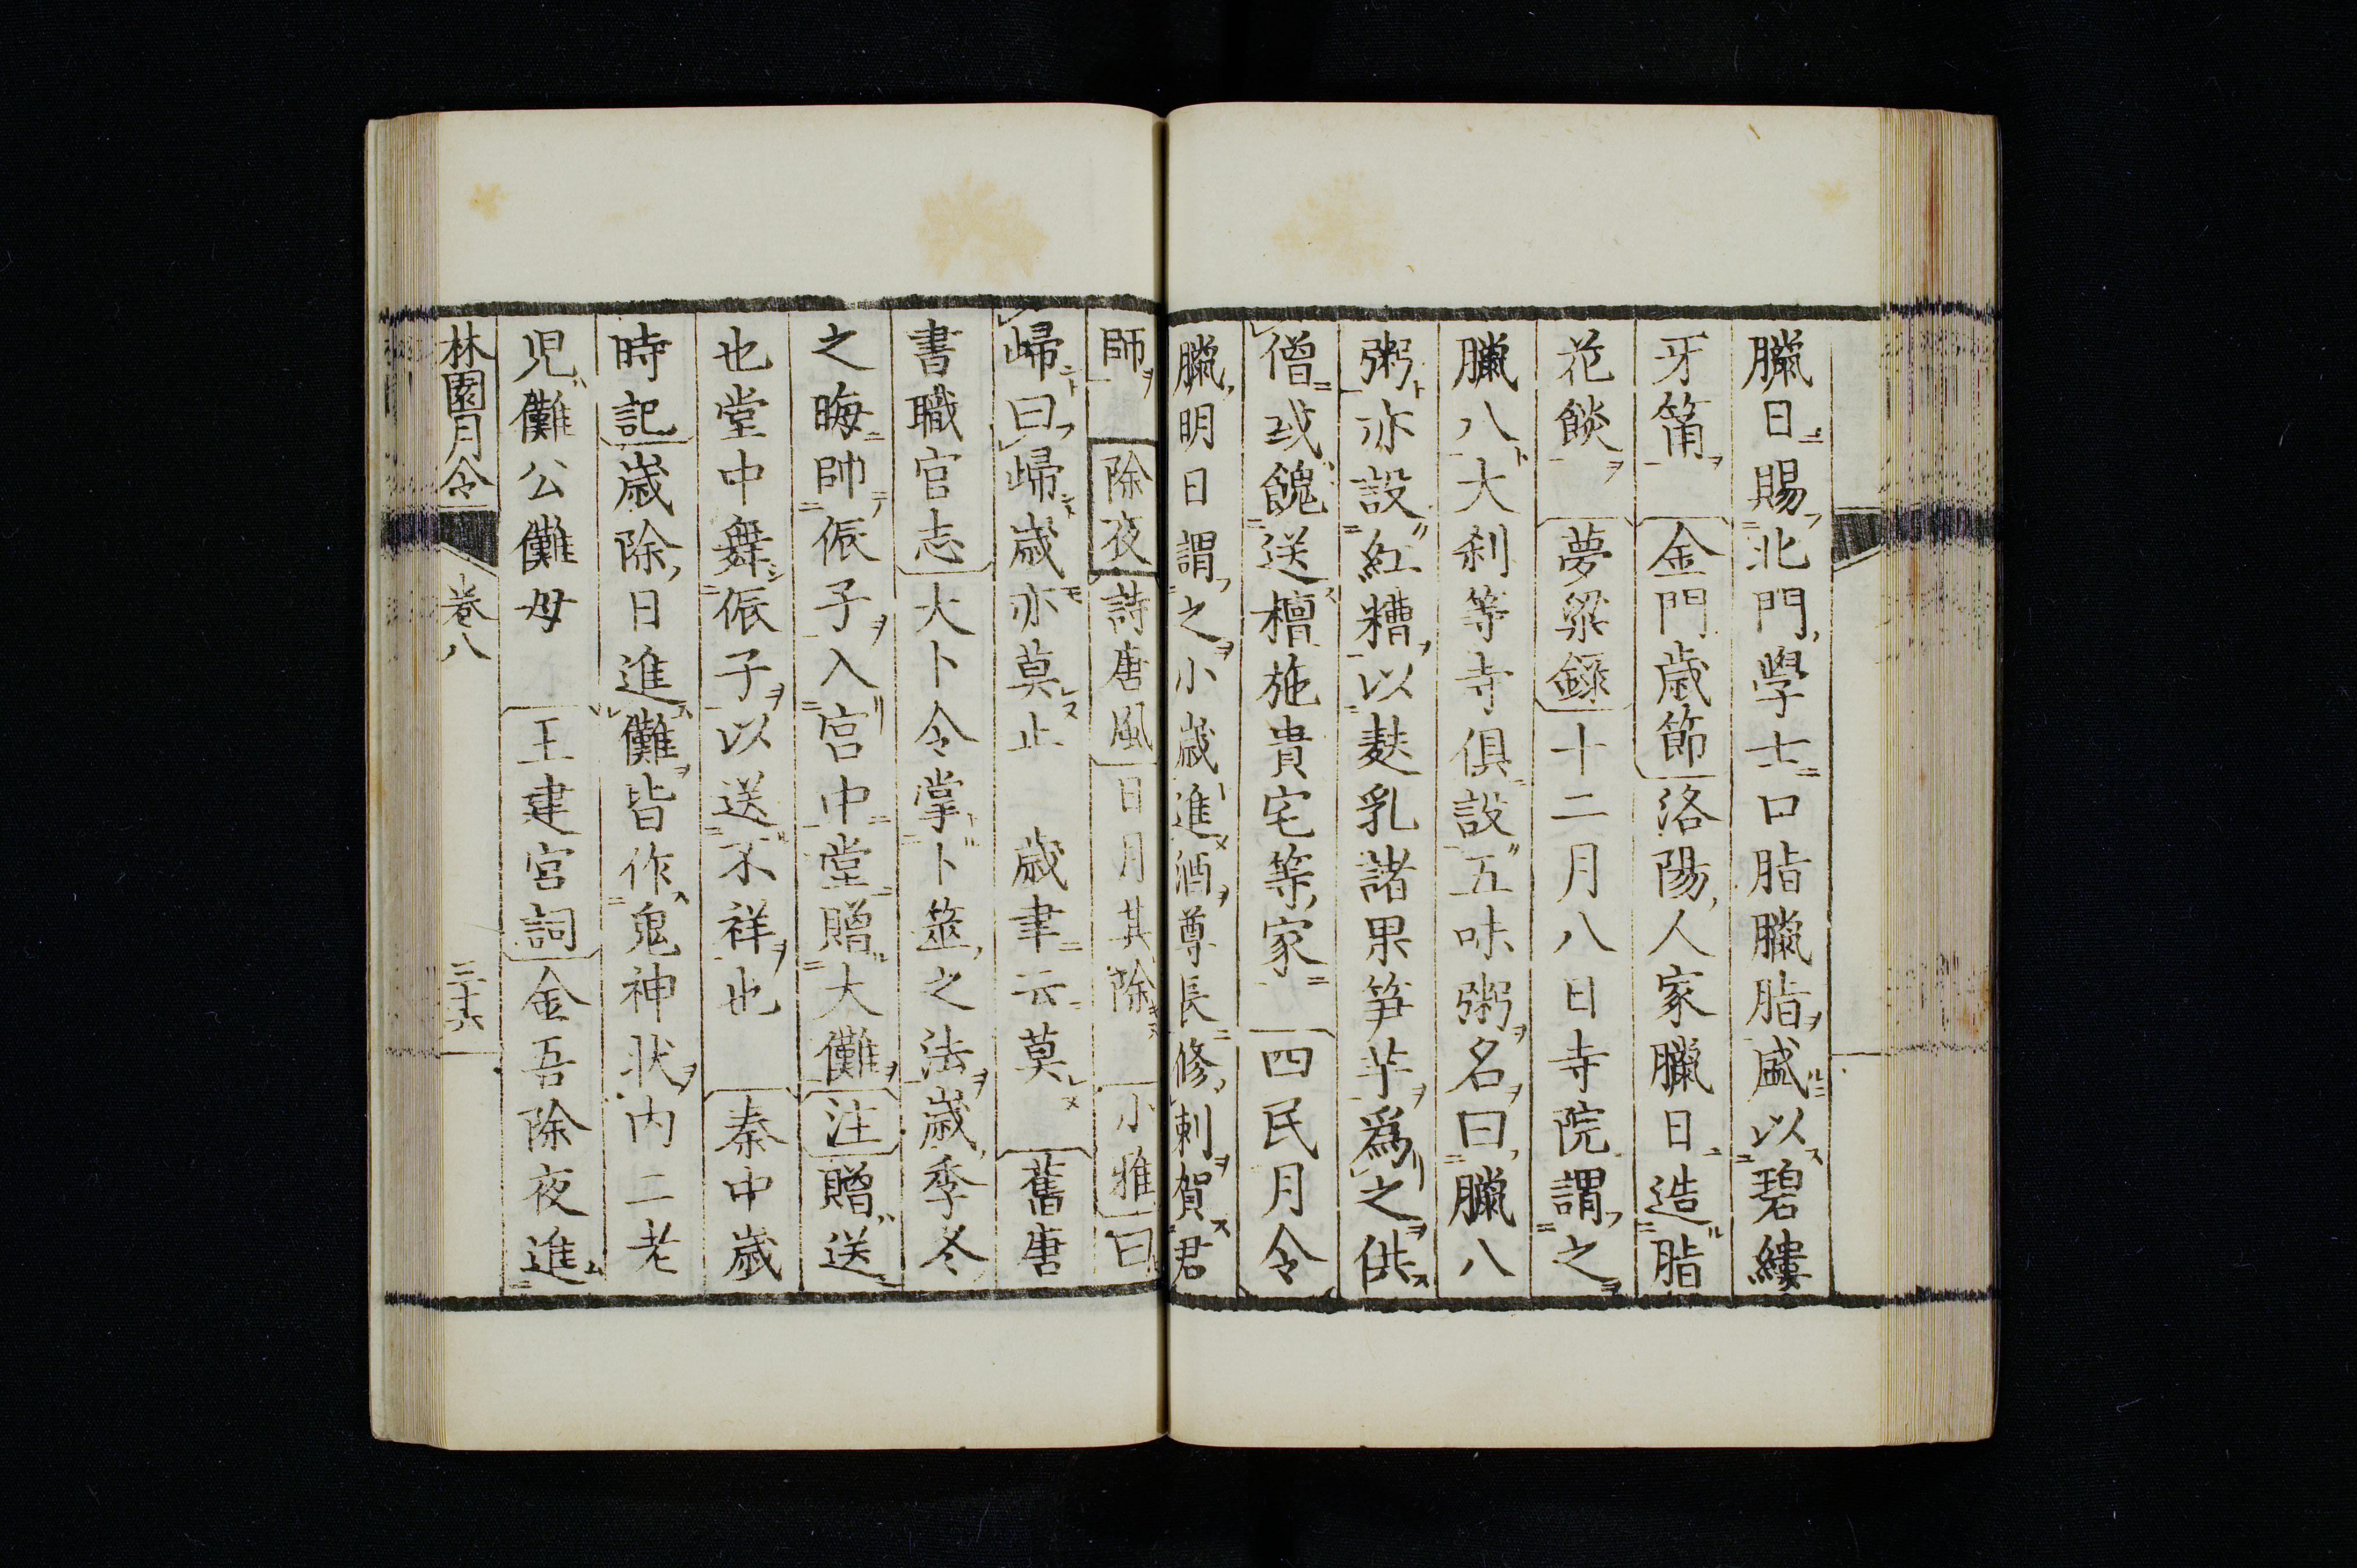 臘日賜北門學士口脂臘脂盛以碧縷
牙筩 金門歲節洛陽人家臘日造脂
花餤 夢梁錄十二月八日寺院謂之
臘八大刹等寺俱設五味粥名曰臘八
粥亦設紅糟以麩乳諸果笋芋爲之供
僧或餽送檀施貴宅等家 四民月令
臘明日謂之小歲進酒尊長修刺賀君
師 除夜 詩唐風日月其除 小雅曰
歸曰歸歲亦莫止 歲聿云莫 舊唐
書職官志大卜令掌卜筮之法歲季冬
之晦帥侲子入宮中堂贈大儺注贈送
也堂中舞侲子以送不祥也 秦中歲
時記歲除日進儺皆作鬼神狀内二老
児儺公儺母 王建宮詞金吾除夜進
林園月令 卷八 三十六